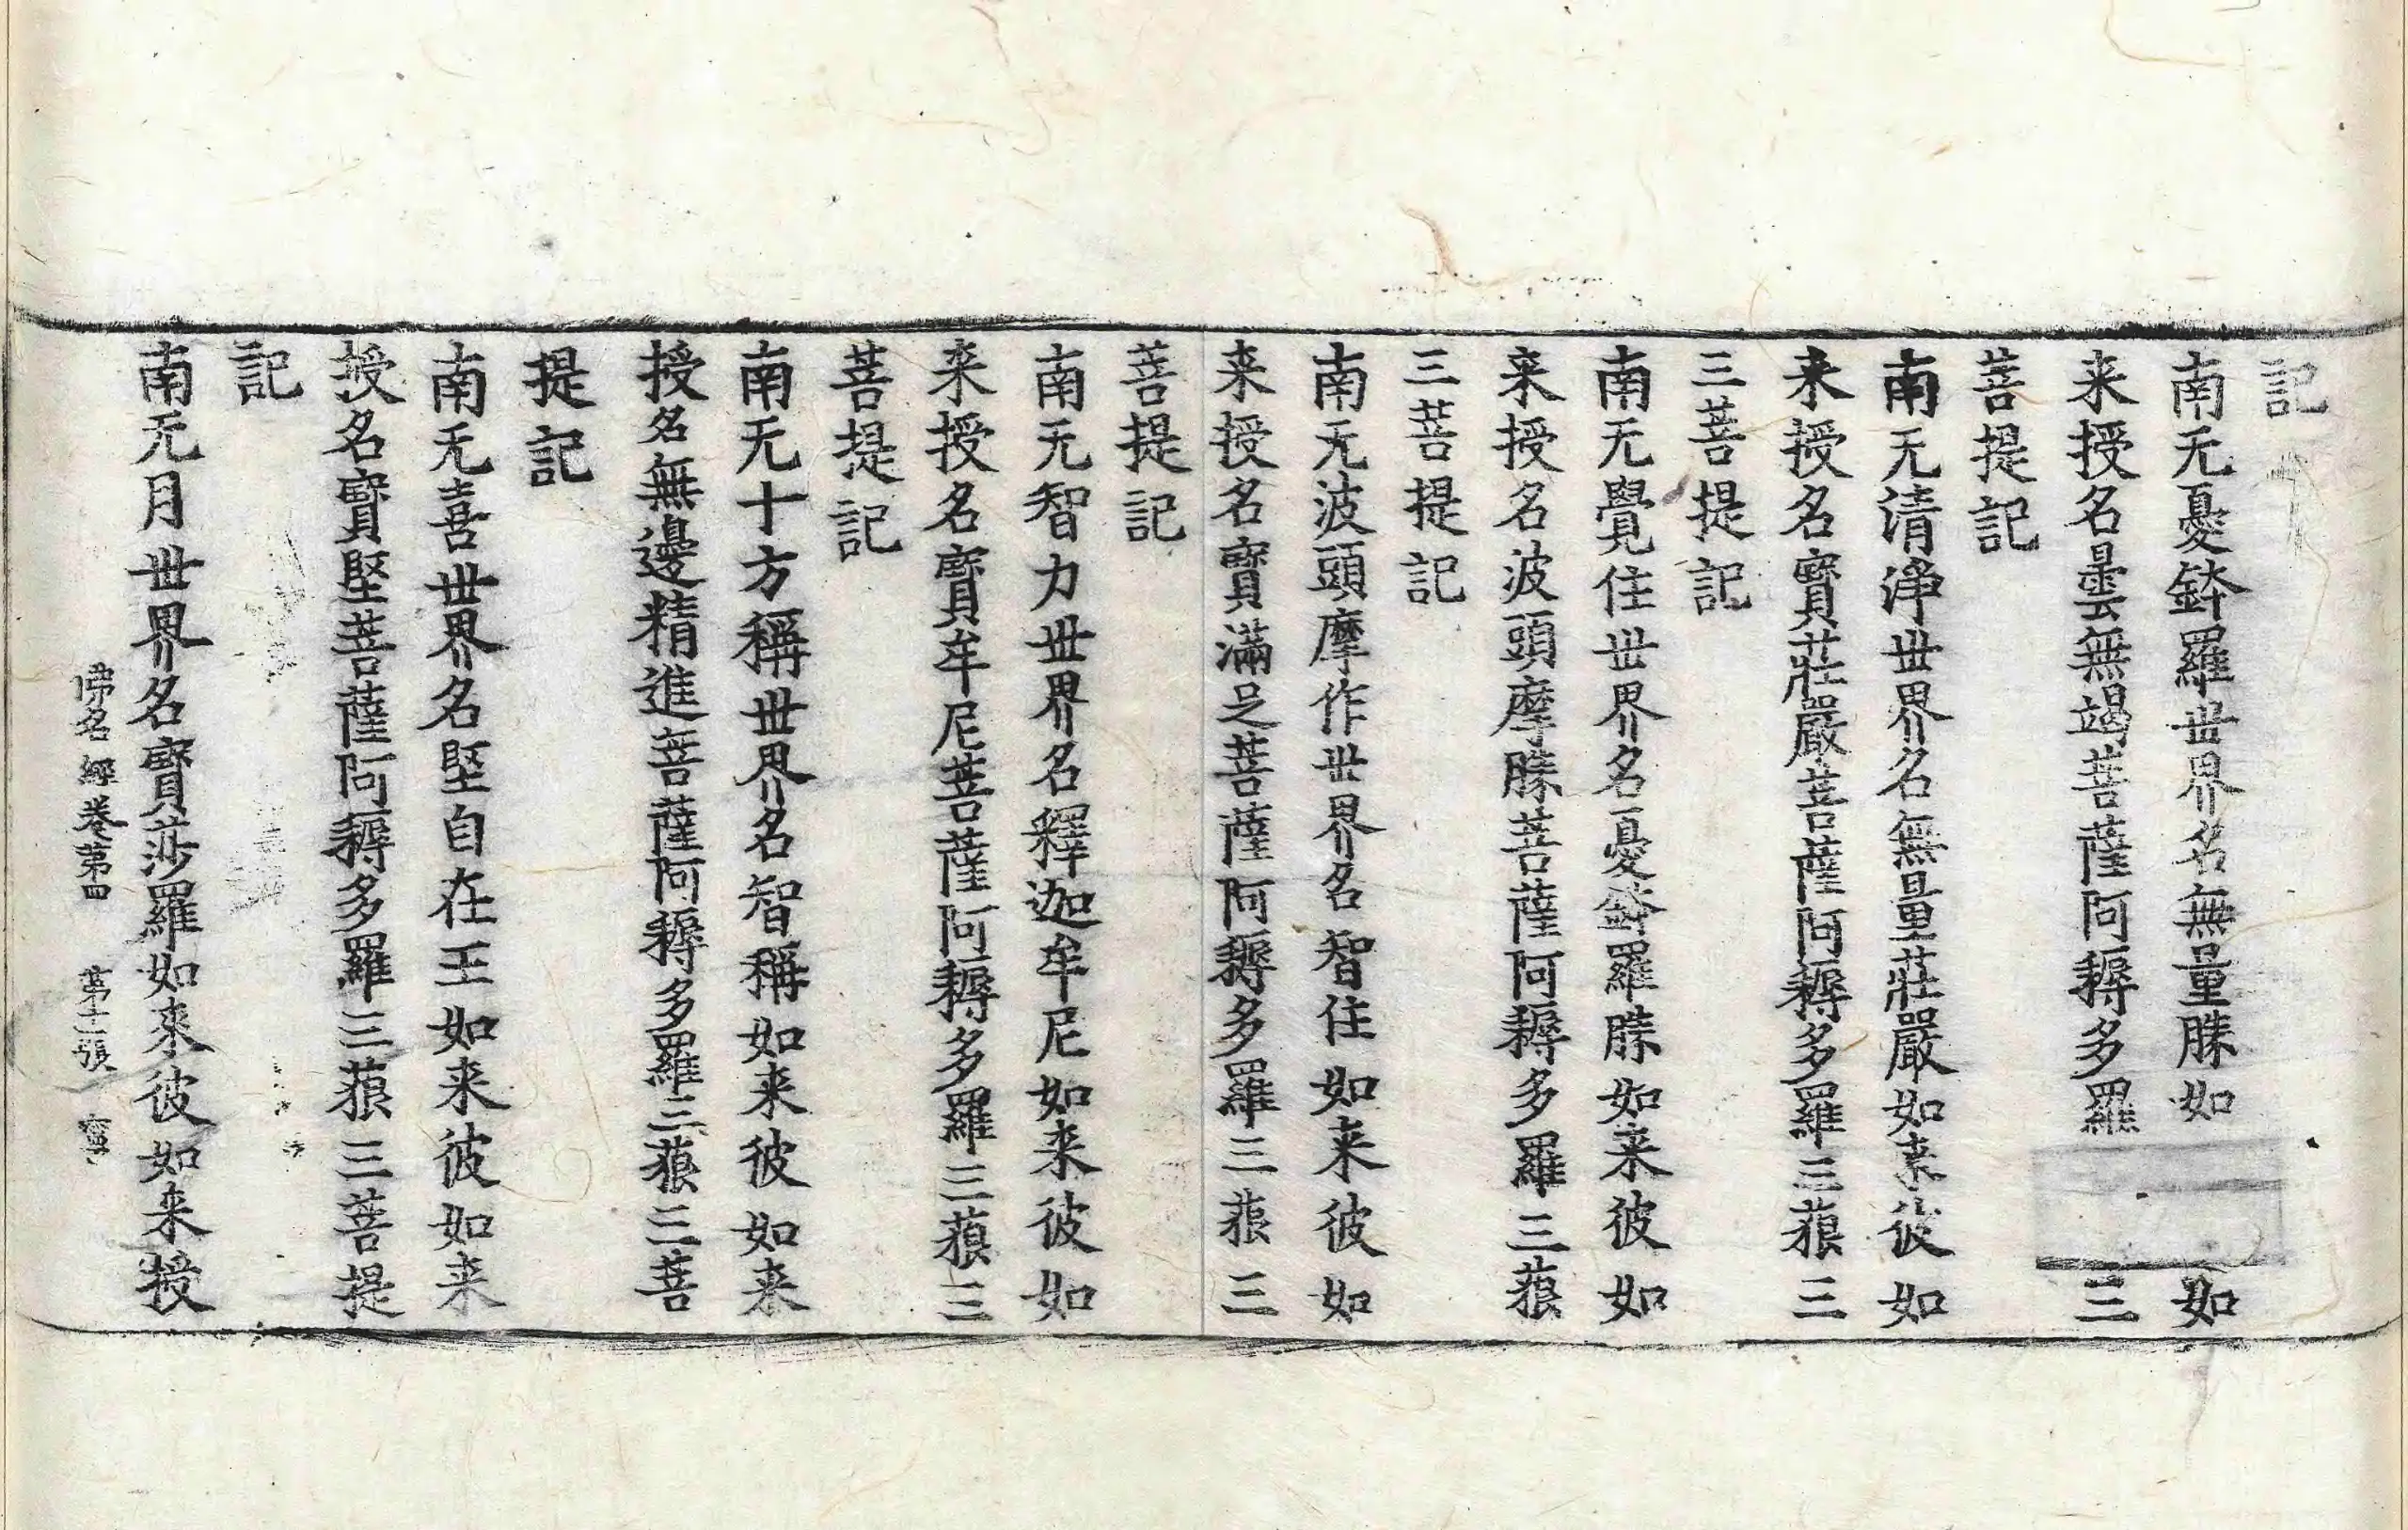 記
南无憂鉢羅世界名無量勝如如
来授名曇無竭菩薩阿耨多羅三
菩提記
南无清淨世界名無量莊嚴如来彼如
来授名寶莊嚴菩薩阿耨多羅三藐三
三菩提記
南无覺住世界名憂鉢羅勝如来彼如
来授名波頭摩勝菩薩阿耨多羅三藐
三菩提記
南无波頭摩作世界名智住如来彼如
来授名寶滿足菩薩阿耨多羅三藐三
菩提記
南无智力世界名釋迦牟尼如来彼如
来授名寶牟尼菩薩阿耨多羅三藐三
菩提記
南无十方稱世界名智稱如来彼如来
授名無邊精進菩薩阿耨多羅三藐三菩
提記
南无喜世界名堅自在王如来彼如来
授名寶堅菩薩阿耨多羅三藐三菩提
記
南无月世界名寶莎羅如来彼如来授
佛名經卷第四 第十二張